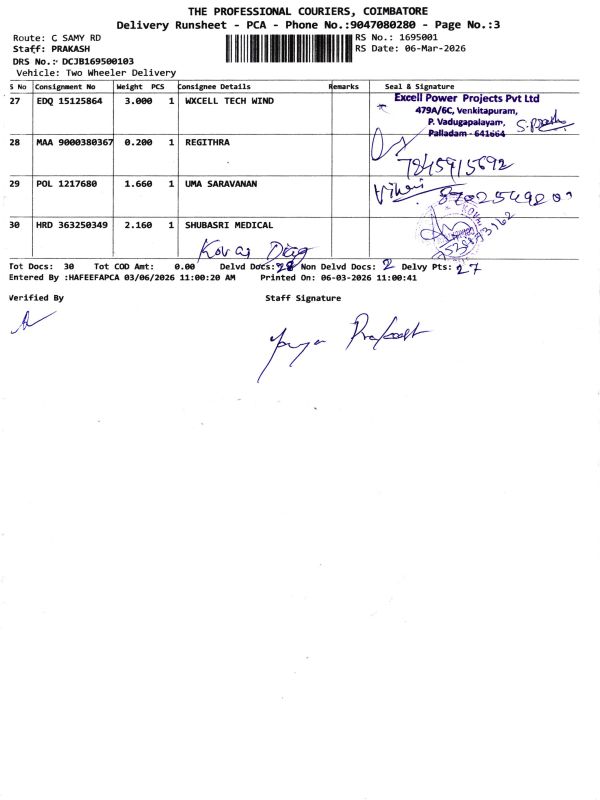 THE PROFESSIONAL COURIERS, COIMBATORE
Delivery Runsheet - PCA - Phone No.:9047080280 - Page No.:3
Route: C SAMY RD
RS No.: 1695001
Staff: PRAKASH
RS Date: 06-Mar-2026
DRS No.: DCJB169500103
Vehicle: Two Wheeler Delivery
S No Consignment No Weight PCS Consignee Details Remarks Seal & Signature
27 EDQ 15125864 3.000 1 WXCELL TECH WIND
Excell Power Projects Pvt Ltd
479A/6C, Venkitapuram,
P. Vadugapalayam,
Palladam - 641664
28 MAA 9000380367 0.200 1 REGITHRA
7845915692
29 POL 1217680 1.660 1 UMA SARAVANAN
30 HRD 363250349 2.160 1 SHUBASRI MEDICAL
Tot Docs: 30 Tot COD Amt: 0.00 Delvd Docs: 28 Non Delvd Docs: 2 Delvy Pts: 27
Entered By :HAFEEFAPCA 03/06/2026 11:00:20 AM Printed On: 06-03-2026 11:00:41
Verified By
Staff Signature